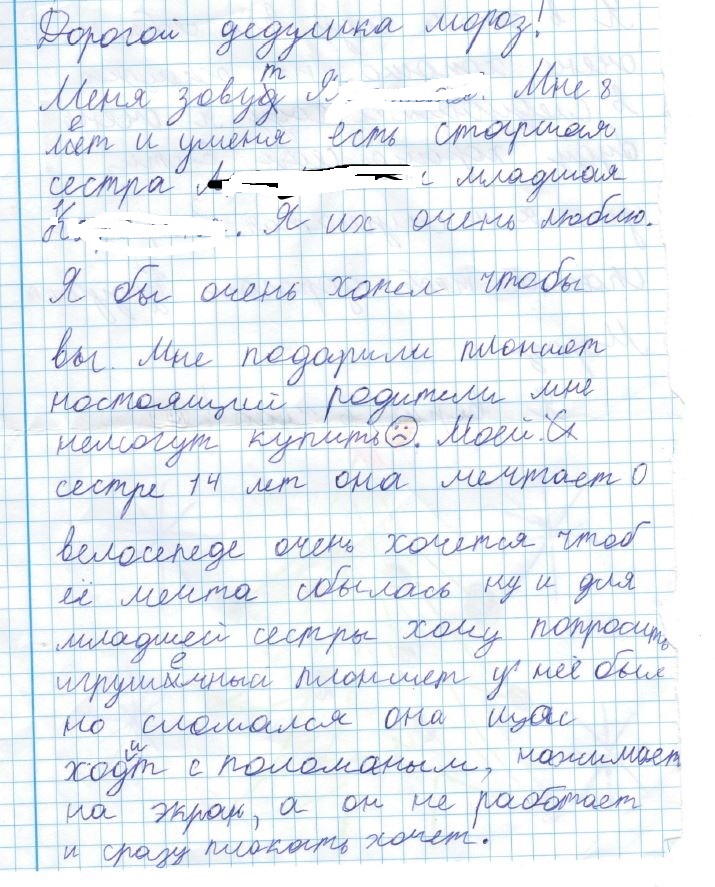 Дорогой дедушка мороз!
Меня зовут Я Мне 8
лет и уменя есть старшая
сестра А и младшая
К. Я их очень люблю.
Я бы очень хотел чтобы
вы. Мне подарили планшет
настоящий родители мне
немогут купить☹. Моей
сестре 14 лет она мечтает о
велосепеде очень хочется чтоб
её мечта сбылась ну и для
младшей сестры хочу попросить
игрушечный планшет у неё был
но сломался она щас
ходит с поломаным, нажимает
на экран, а он не работает
и сразу плакать хочет.